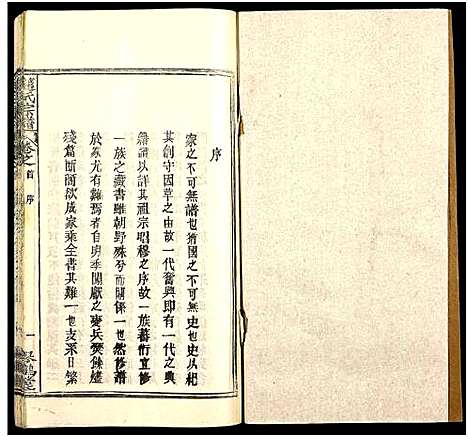 序
家之不可無譜也猶國之不可無史也史以紀
其創守因革之由故一代奮興即有一代之典
譜以詳其祖宗昭穆之序故一族蕃衍宜修
一族之藏書雖朝野殊分而關係一也然修譜
於家尤有難焉者自明季闖獻之變兵燹餘燼
殘篇斷簡欲成家乘全書其難一也支系日繁
氏宗譜
卷之首
序
一
堂